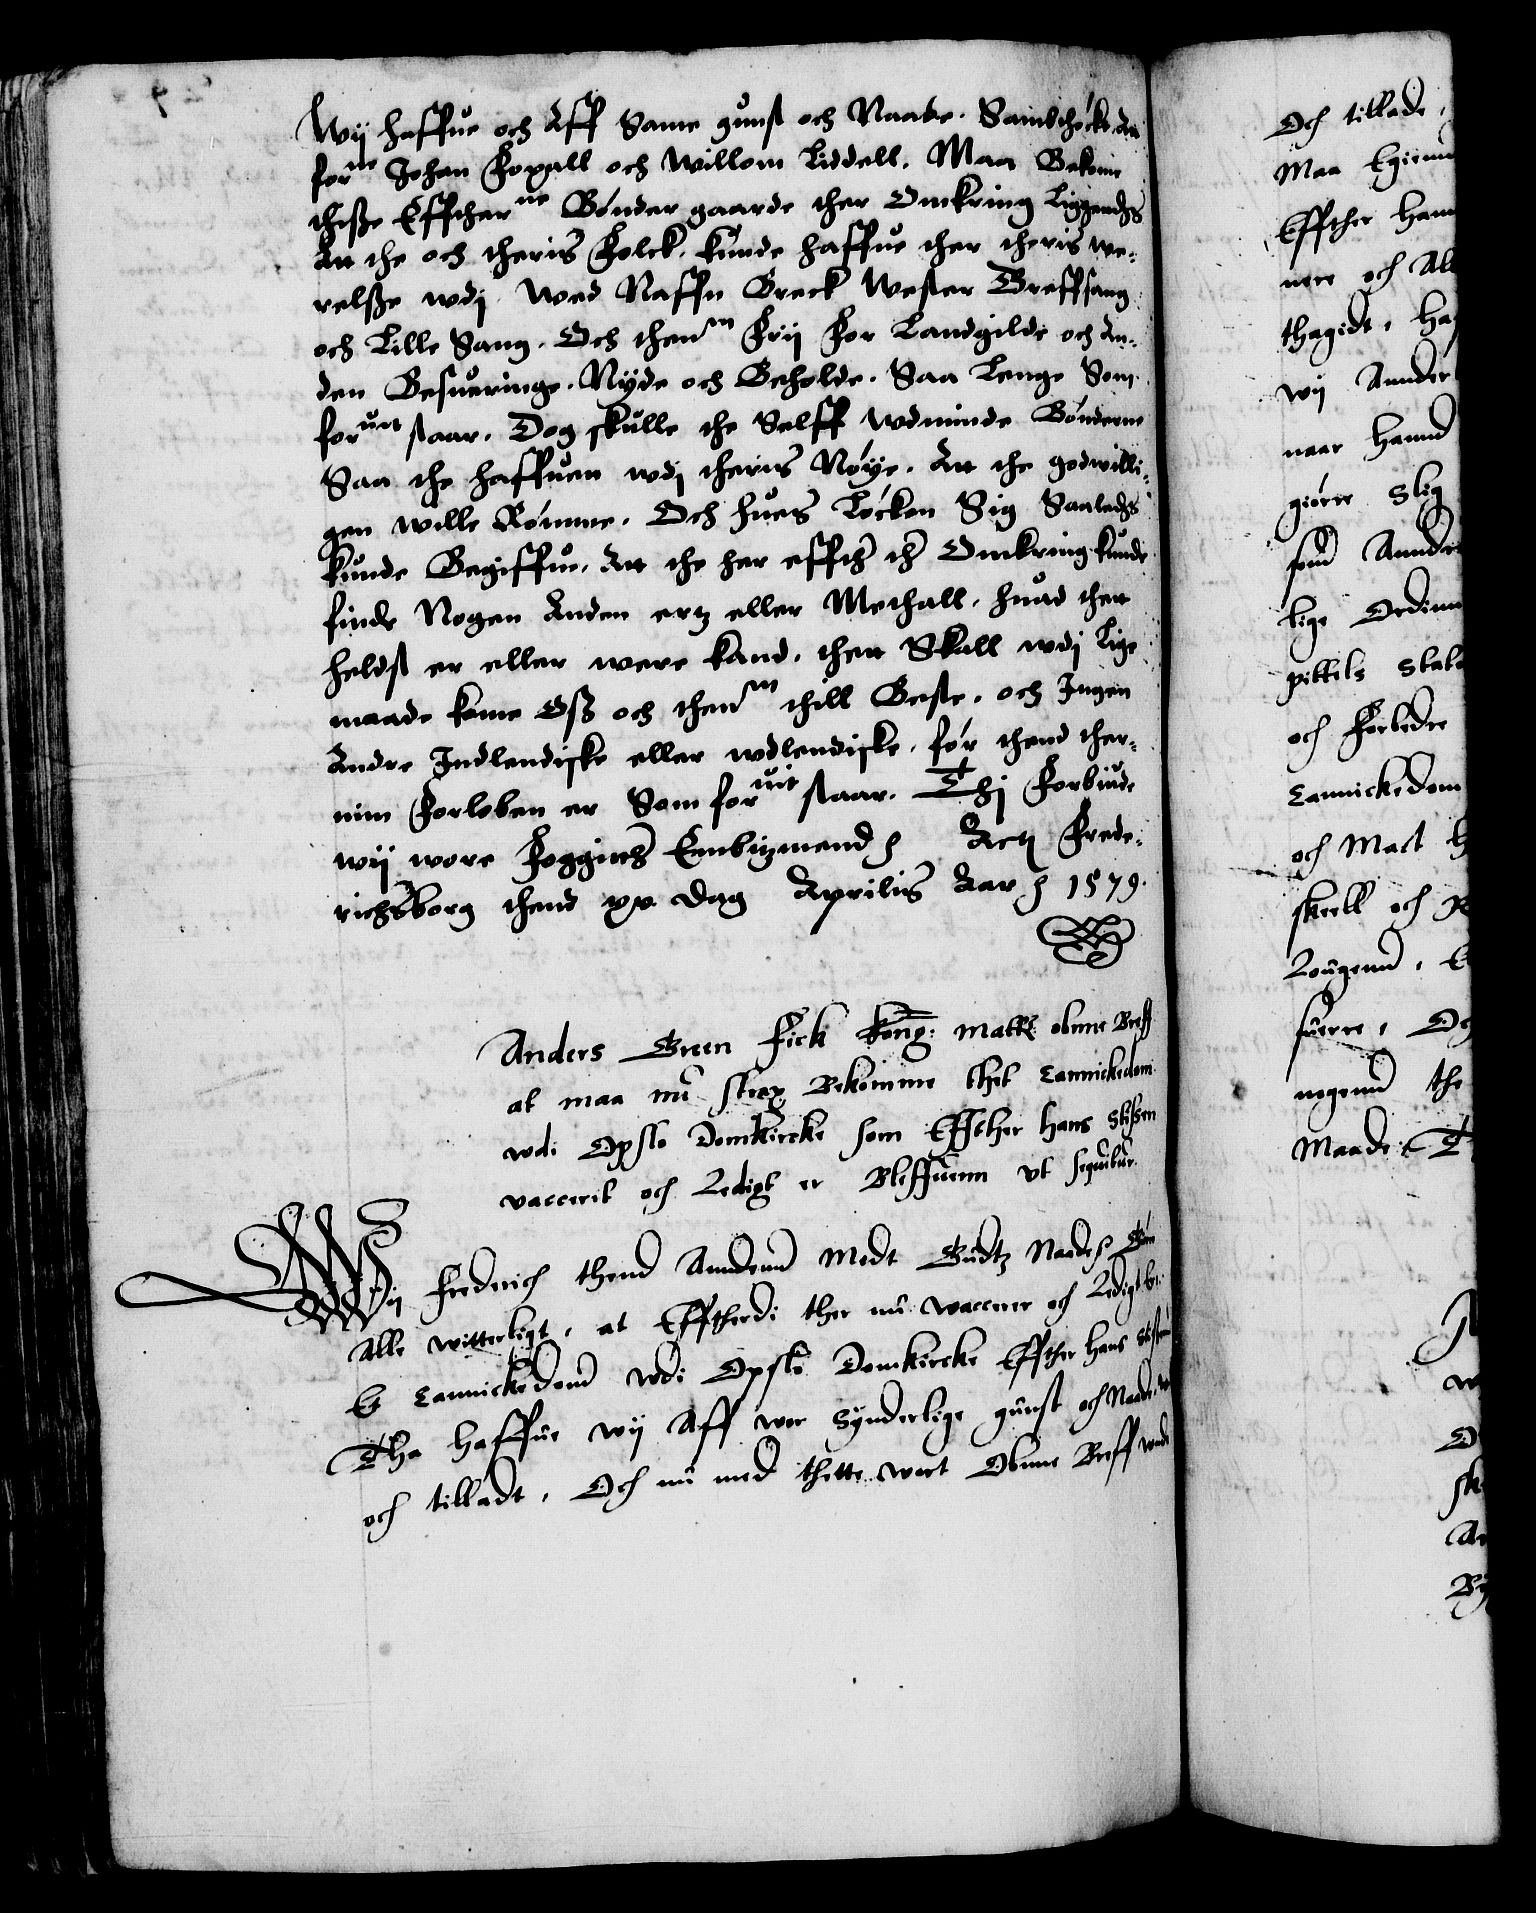 Wij haffue och Aff Same gunst och Naade. Samtchöckt. An
forne Johan Foxall och Willom Liddell. Maa Bekome
thisße Effther ne Bönder gaarde ther Omkring Liggendhs
Att the och theris Folck. kunde haffue ther theris we:
relsße wdj. Wed Naffn Greck Wester Greffsang
och Lille Sang. Och thenm Frij for Landgilde och An:
den Besueringe. Nyde och Beholde. Saa Lenge Som
foruit staar. Dog skulle the Selff wdminde Bönderne
Saa the haffuen wdj theris Nöye. Att the godwilli:
gen wille Römme. Och huis Löcken Sig Saaledhs
kunde Begiffue. Att the her effth th Omkring kunde
finde Nogen Anden ertz eller Methall. huad thett
heldst er eller were kand. thett Skall wdj Lige
maade kome Osß och thenm thill Beste. och Ingen
Andre Indlendiske eller wdlendiske. för thend ther:
nim Forloben er Som foruit staar. Thj Forbiude
wij wore Foggiter Embitzmend ꝭ Actz Frede:
richsborg thend xx. Dag Aprilis Aar ꝭ 1579.
Anders Green Fick Kong: Matts obnne Breff
at maa nu strax Bekomme thet Cannickedom
wdi Opslo Domkircke som Effther Hans Stissen
vaccerit och Ledigt er Bleffuenn vt sequitur.
Wij Frederich thend Anndenn Medt Gudtz Naade ꝭ Giör
Alle witterligt, at Efftherdi ther nu waccerer och Ledigt er
Et Cannickedom wdi Opslo Domkircke Effther Hans Stissen
Tha haffue wij Aff wor synderlige gunst och Naade, vndt
och tilladt, Och nu med thette wort Obnne Breff wnde
Och tillade,
Maa Egienn
Effther Hann
nere och All
thagidt, Ha
wij Annder
naar Hannd
giörre Slig
som Anndre
lige Ordinn
pittels Stat
och Forbedre
Cannickedom
och Mact
skeell och R
Lougenn, E
suerre, Og
nogenn the
Maade, T